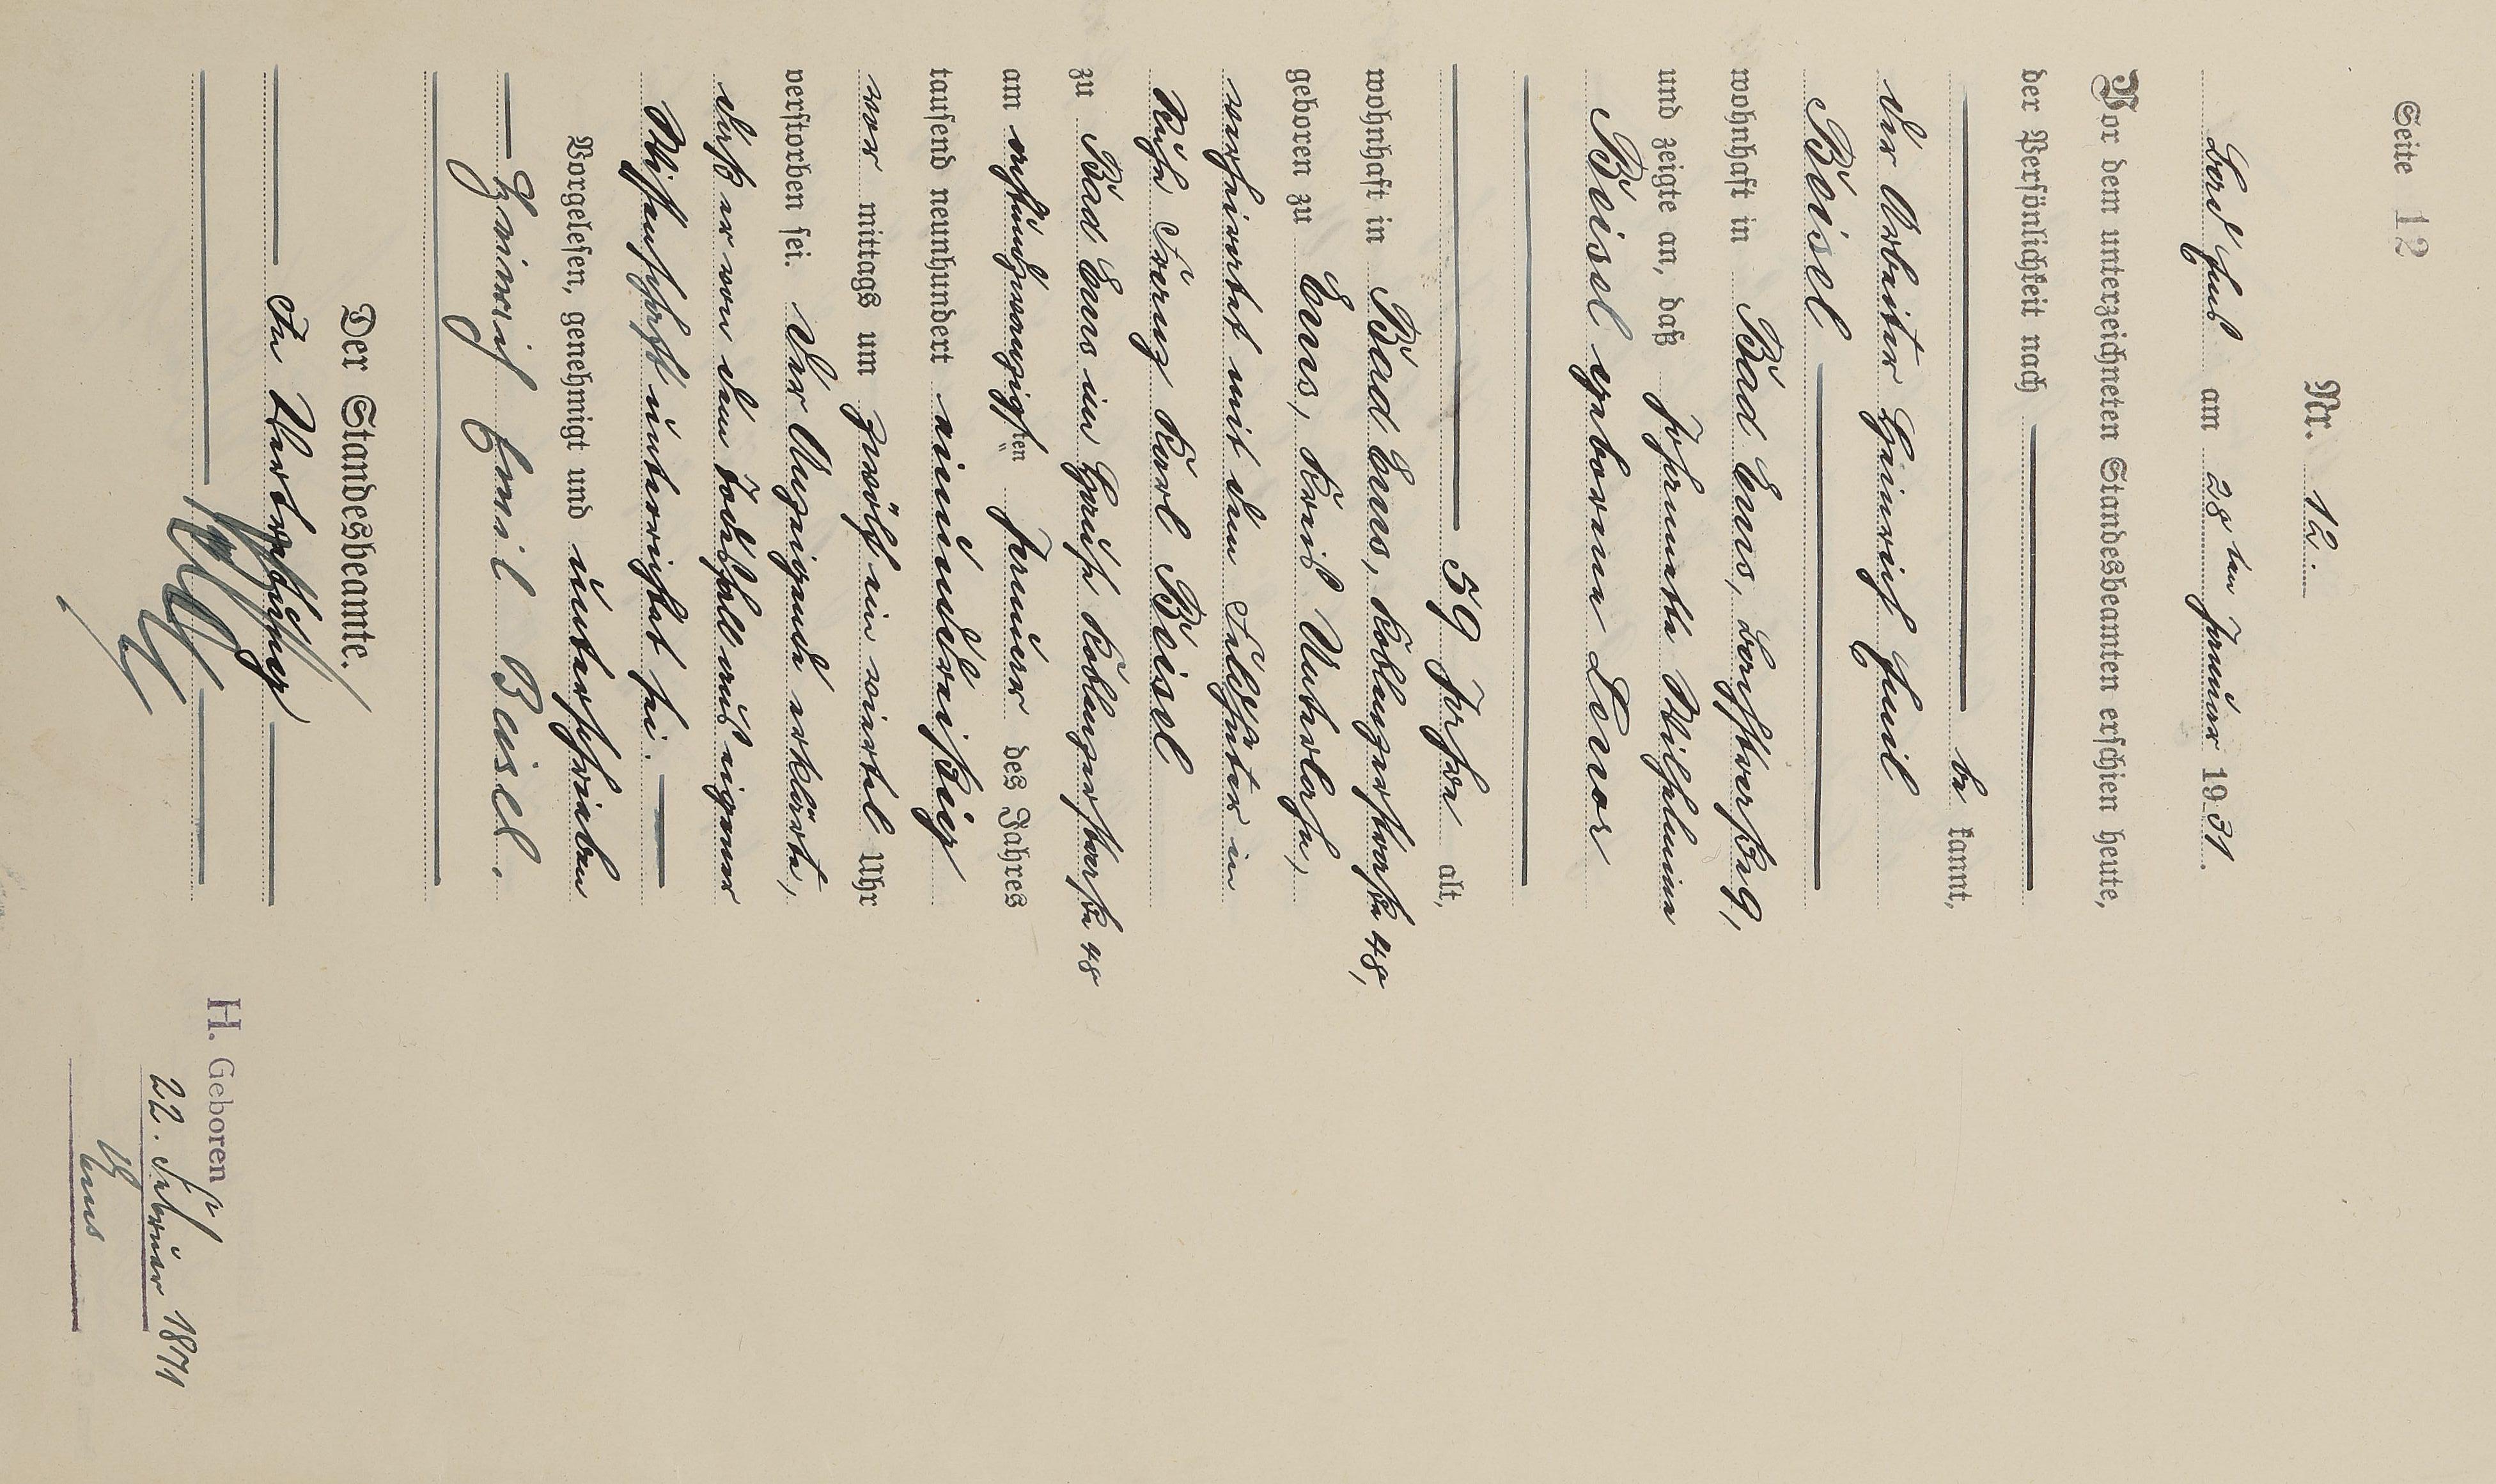 Seite 12
Nr. 12.
Bad Ems am 28ten Januar 1931.
Vor dem unterzeichneten Standesbeamten erschien heute,
der Persönlichkeit nach
be kannt,
der Arbeiter Heinrich Emil
Beisel
wohnhaft in Bad Ems, 9,
und zeigte an, daß Johanna Wilhelmina
Beisel geborene
59 Jahre alt,
wohnhaft in Bad Ems, Koblenzerstraße 48,
geboren zu Ems, Kreis Unterlahn,
verheiratet mit dem in
Ruhe Franz Karl Beisel
zu Bad Ems im Hause Koblenzerstraße 48
am achtundzwanzigsten Januar des Jahres
tausend neunhundert einunddreißig
vor mittags um zwölf ein viertel Uhr
verstorben sei. Der Anzeigende erklärte,
daß er von dem Todesfall aus eigener
Wissenschaft unterrichtet sei.
Vorgelesen, genehmigt und unterschrieben
Heinrich Emil Beisel.
Der Standesbeamte.
In Vertretung
H. Geboren
22. Februar 1871
Ems